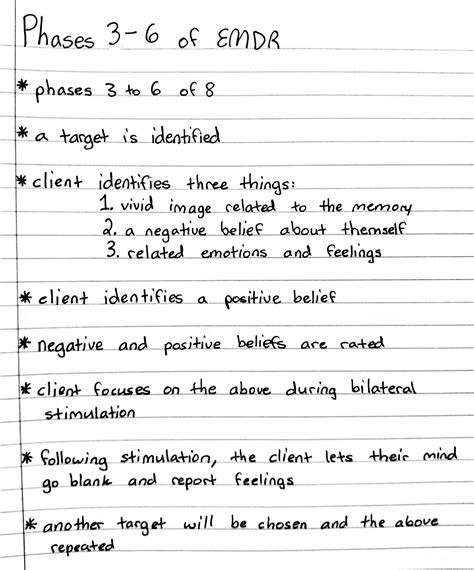 Phases 3-6 of EMDR
* phases 3 to 6 of 8
* a target is identified
* client identifies three things:
1. vivid image related to the memory
2. a negative belief about themself
3. related emotions and feelings
* client identifies a positive belief
* negative and positive beliefs are rated
* client focuses on the above during bilateral
stimulation
* following stimulation, the client lets their mind
go blank and report feelings
* another target will be chosen and the above
repeated